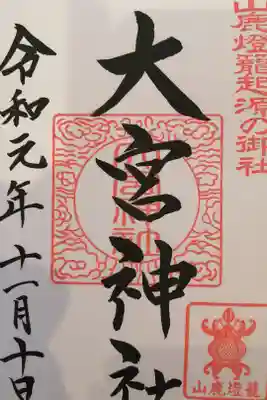 山鹿燈籠起源の御社
大宮神社
令和元年十一月十日
山鹿燈籠